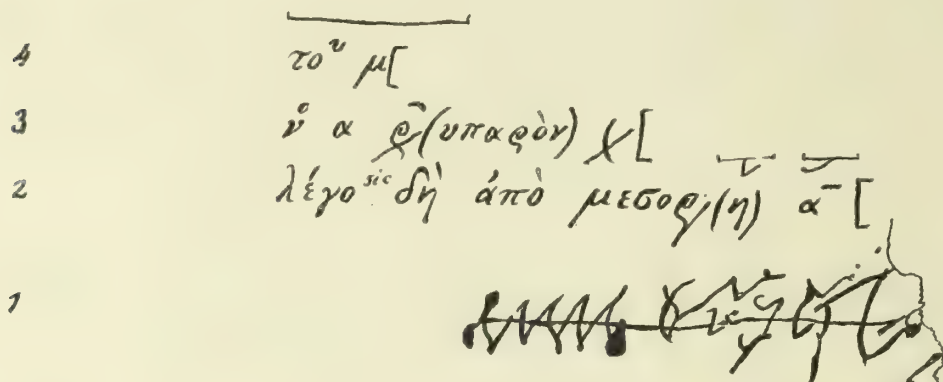 4 τοᵘ μ[
3 ν̊ α ρ̄(υπαρὸν) χ[
2 λέγο sic δὴ ἀπὸ μεσορ(η) α¯ [
1